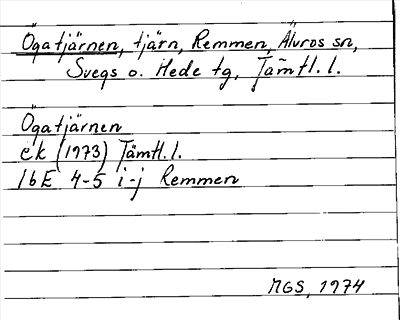 Ögatjärnen, tjärn, Remmen, Älvros sn,
Svegs o. Hede tg, Jämtl. l.
Ögatjärnen
ek (1973) Jämtl. l.
16E 4-5 i-j Remmen
MGS, 1974